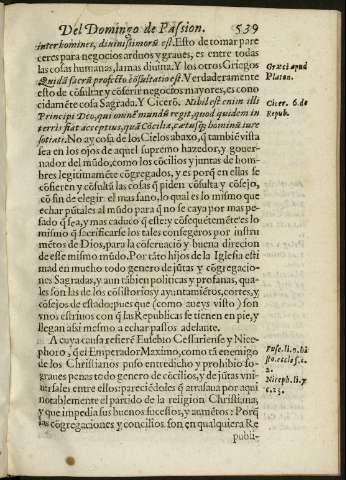 Del Domingo de Passion. 539
inter homines, diuinissimorū est. Esto de tomar pare
ceres para negocios arduos y graues, es entre todas
las cosas humanas, la mas diuina. Y los otros Griegos
Quædā sacrū profecto cōsultatio est. Verdaderamente
esto de cōsultar y cōferir negocios mayores, es cono
cidamēte cosa Sagrada. Y Cicerō. Nihil est enim illi
Principi Deo, qui omnē mundū regit, quod quidem in
terris fiat acceptius, quā Cōcilia, cœtusq; hominū iure
sotiati. No ay cosa de los Cielos abaxo, q̄ tambiē vista
sea en los ojos de aquel supremo hazedor, y gouer-
nador del mūdo, como los cōcilios y juntas de hom-
bres legitimamēte cōgregados, y es porq̄ en ellas se
cōfieren y cōsultā las cosas q̄ piden cōsulta y cōsejo,
cō fin de elegir el mas sano, lo qual es lo mismo que
echar pūtales al mūdo para q̄ no se caya por mas pe-
sado q̄ sea, y mas caduco q̄ este: y cōsequētemēte es lo
mismo q̄ sacrificarse los tales consegeros por instru
mētos de Dios, para la cōseruaciō y buena direcion
de esse mismo mūdo. Por tāto hijos de la Iglesia esti
mad en mucho todo genero de jūtas y cōgregacio-
nes Sagradas, y aun tābien politicas y profanas, qua-
les son las de los cōsistorios y ayuntamiētos, cortes, y
cōsejos de estado; pues que (como aueys visto) son
vnos estriuos con q̄ las Republicas se tienen en pie, y
llegan assi mesmo a echar passos adelante.
A cuya causa refierē Eusebio Cessariense y Nice-
phoro, q̄ el Emperador Maximo, como tā enemigo
de los Christianos puso entredicho y prohibio so-
graues penas todo genero de cōcilios, y de jūtas vni-
uersales entre ellos: pareciēdoles q̄ atrasaua por aqui
notablemente el partido de la religion Christiana,
y que impedia sus buenos sucessos, y aumētos: Porq̄
las cōgregaciones y concilios son en qualquiera Re
publi-
Græci apud
Platon.
Cicer. 6. de
Repub.
Euse. li. 9. hi
sto. eccles. c.
2.
Niceph. li. 7
c. 23.